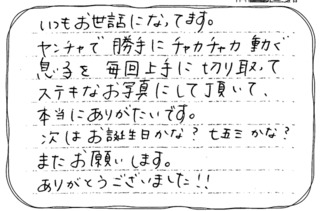 いつもお世話になってます。
ヤンチャで勝手にチャカチャカ動く
息子を毎回上手に切り取って
ステキなお写真にして頂いて、
本当にありがたいです。
次はお誕生日かな？七五三かな？
またお願いします。
ありがとうございました!!